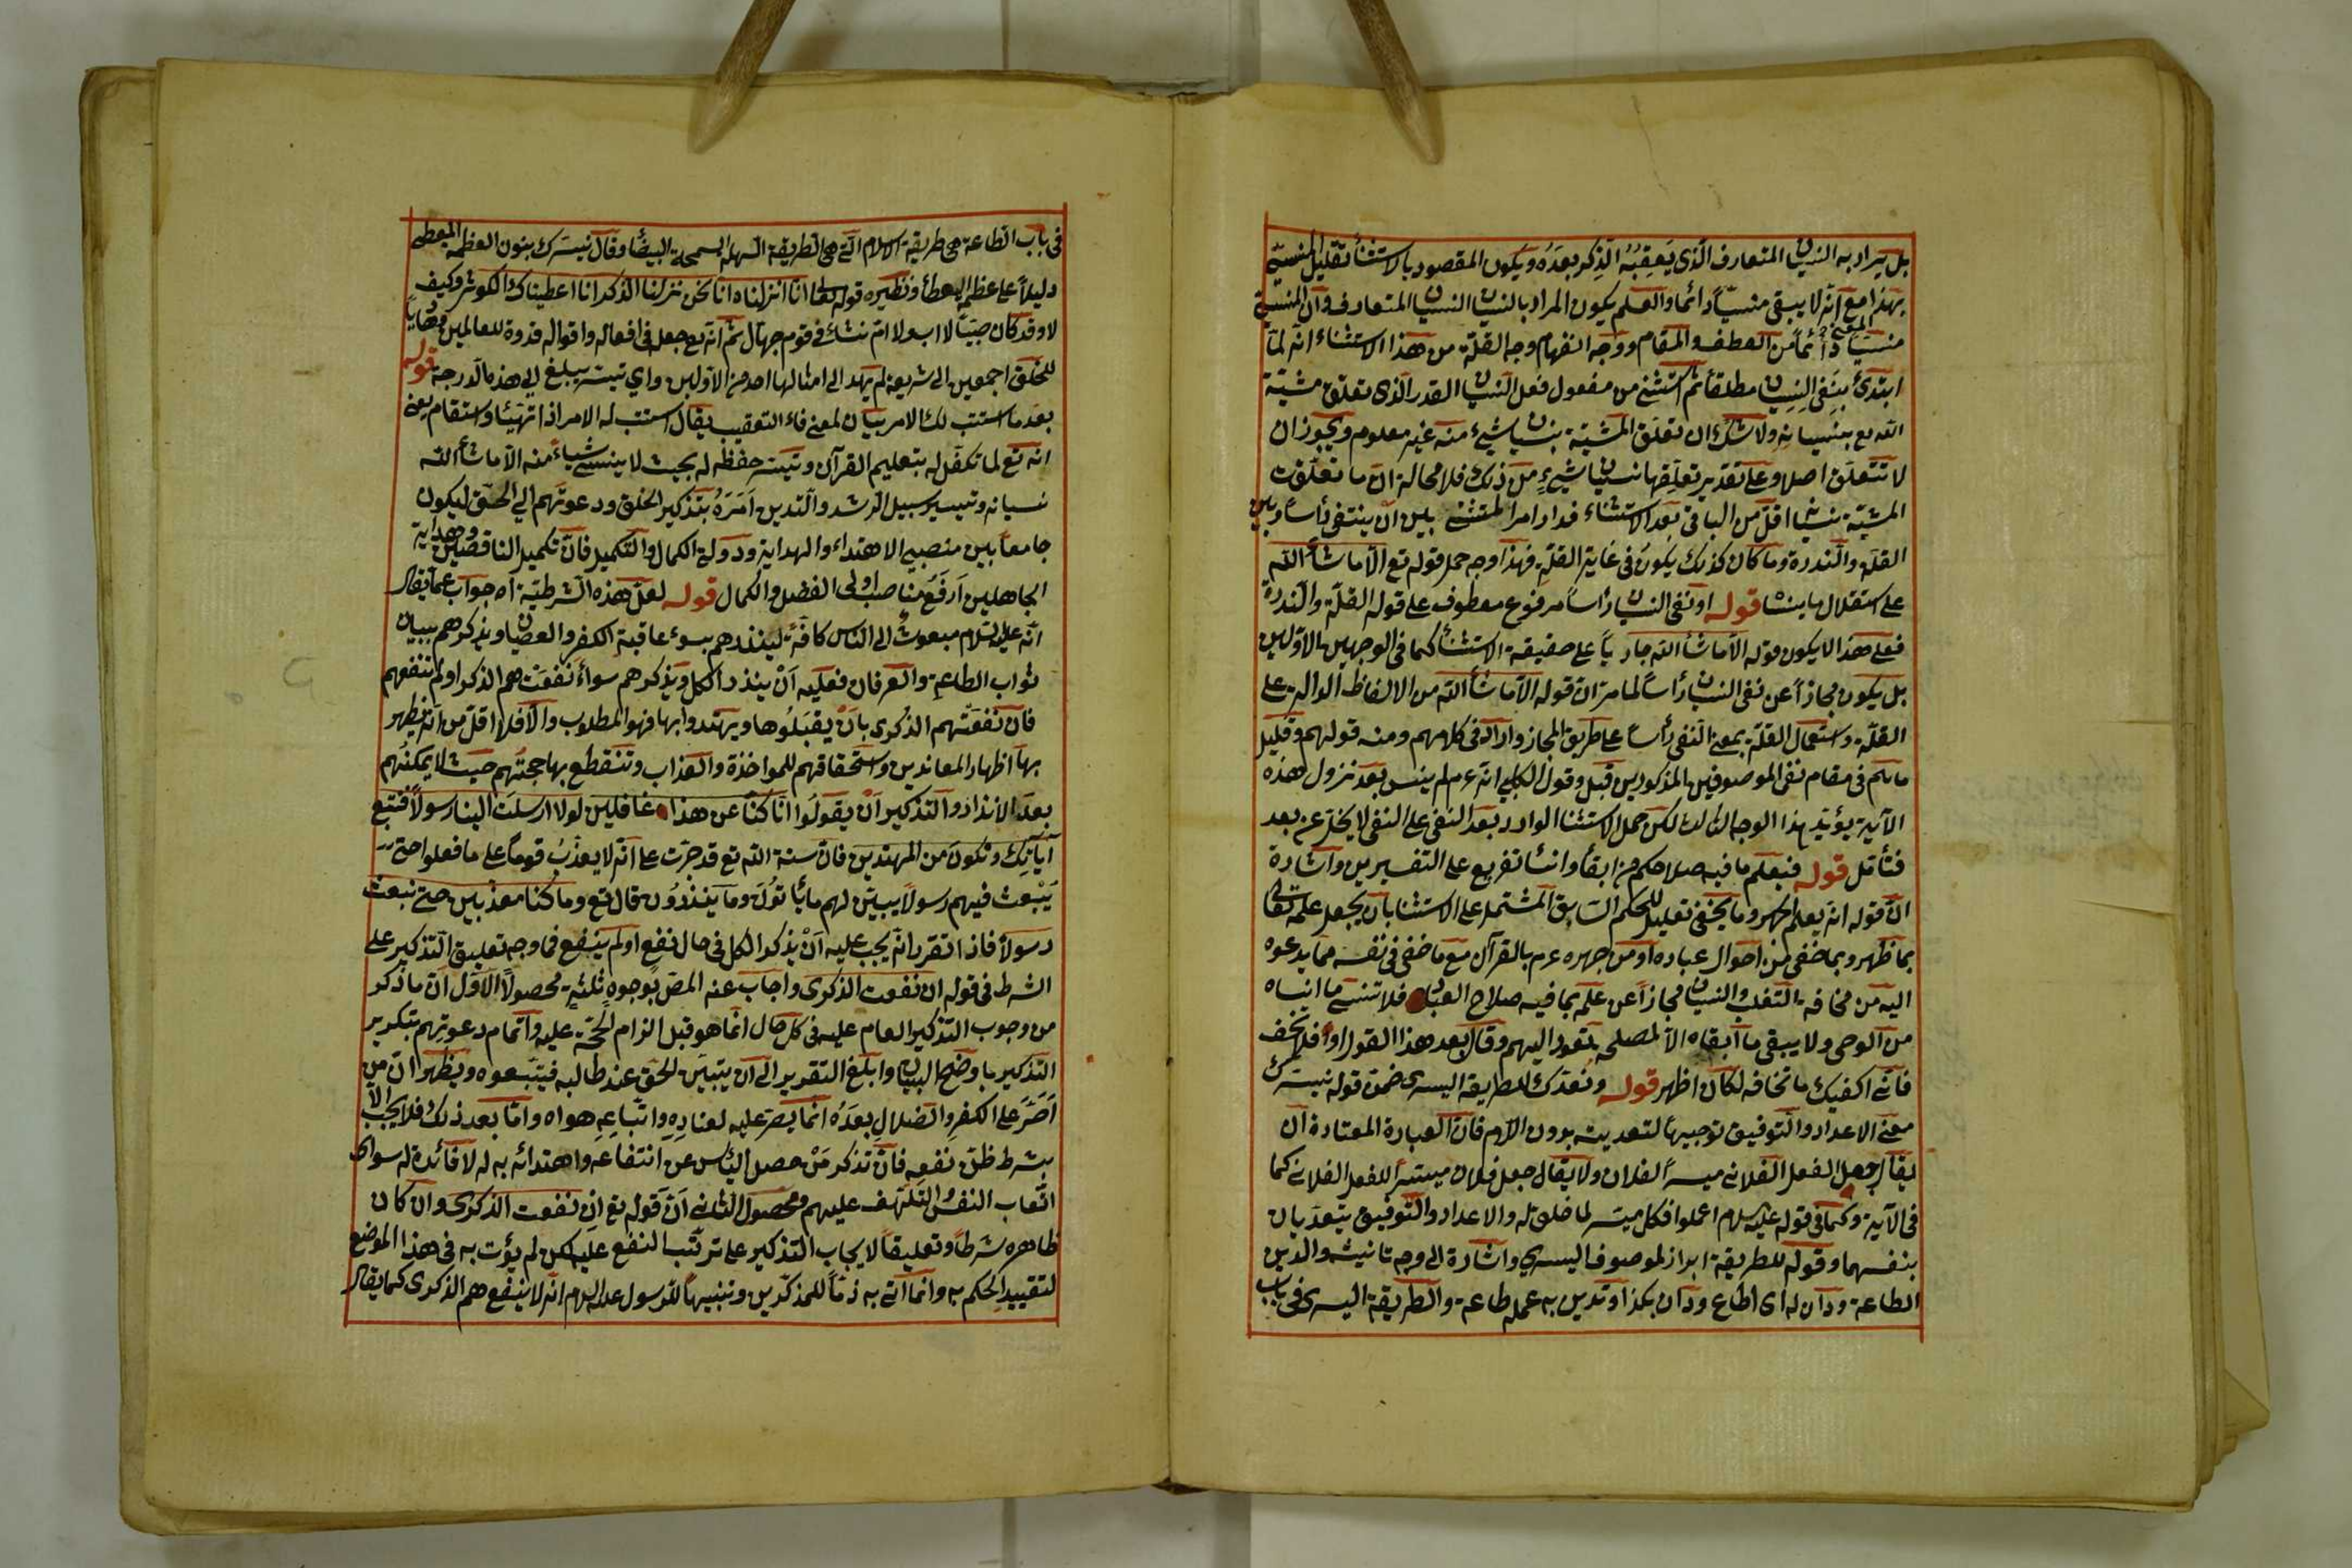 بل يراد به النسيان المتعارف الذى يعقبه الذكر بعده ويكون المقصود بالاستثنأ تقليل المنسى
بهذا مع انه لا يبقى منسيا دائما والعلم يكون المراد بالنسيان النسيان المتعارف وان المنسى
منسيا دائما من العطف والمقام ووجه انفهام وجه القلة من هذا الاستثناء انه لما
ابتدئ بنفى النسيان مطلقا ثم استثنى من مفعول فعل النسيان القدر الذى تعلق مشية
الله تع بنسيانه ولا شك ان تعلق المشية بنسيان شيء منه غير معلوم ويجوز ان
لا تتعلق اصلا وعلى تقدير تعلقها نسيان شيء من ذلك فلا محالة ان ما تعلقت
المشية بنسيا اقل من الباقى بعد الاستثناء فدار امر المستثنى بين ان ينتفى رأسا وبين
القلة والندرة وما كان كذلك يكون فى غاية القلة فهذا وجه حمل قوله تع الا ماشأ الله
على استقلال ما ينسا قوله او نفى النسيان رأسا مرفوع معطوف على قوله القلة والندرة
فعلى هذا لا يكون قوله الا ماشأ الله جاريا على حقيقة الاستثنأ كما فى الوجهين الاولين
بل يكون مجازا عن نفى النسيان رأسا لما مر ان قوله الا ماشأ الله من الالفاظ الدالة على
القلة واستعمال القلة بمعنى النفى رأسا على طريق المجاز وارد فى كلامهم ومنه قولهم وقليل
ماهم فى مقام نفى الموصوفين المذكورين قبل وقول الكلبي انه عم لم ينس بعد نزول هذه
الآية يؤيد هذا الوجه الثالث لكن حمل الاستثنا الوارد بعد النفى على النفى لا يخلو عن بعد
فتأمل قوله فيعلم ما فيه صلاحكم من ابقأ وانسأ تفريع على التفسيرين واشارة
الى قوله انه يعلم الجهر وما يخفى تعليل للحكم السابق المشتمل على الاستثنا بان يجعل علمه تعالى
بما ظهر وبما خفى من احوال عباده او من جهره عم بالقرآن مع ما خفى فى نفسه مما يدعوه
اليه من مخافة التفلت والنسيان مجازا عن علمه بما فيه صلاح العباد فلا تنسى ما انساه
من الوحى ولا يبقى ما ابقاه الا لمصلحة تعود اليهم وقال بعد هذا القول او فلا تخف
فانى اكفيك ما تخافه لكان اظهر قوله ونعدك للطريقة اليسرى ضمن قوله نيسرك
معنى الاعداد والتوفيق توجيها لتعديته بدون اللام فان العبارة المعتادة ان
يقال جعل الفعل الفلانى ميسرا لفلان ولا يقال جعل فلان ميسرا للفعل الفلانى كما
فى الآية وكما فى قوله عليه السلام اعملوا فكل ميسر لما خلق له والاعداد والتوفيق يتعديان
بنفسهما وقوله للطريقة ابراز لموصوف اليسرى واشارة الى وجه تانيثه والدين
الطاعة ودان له اى اطاع ودان بكذا وتدين به عمله طاعة والطريقة اليسرى فى باب
فى باب الطاعة هى طريقة الاسلام التى هى الطريقة السهلة السمحة البيضأ وقال نيسرك بنون العظمة المعطى
دليلا على عظم العطأ ونظيره قوله تعالى انا انزلناه انا نحن نزلنا الذكر انا اعطيناك الكوثر وكيف
لا وقد كان صبيا لا اب ولا ام نشأ فى قوم جهال ثم انه تع جعل فى افعاله واقواله قدوة للعالمين وهاديا
للخلق اجمعين الى شريعة لم يهد الى امثالها احد من الاولين واي تيسير يبلغ الى هذه الدرجة قوله
بعد ما استتب لك الامر بيان لمعنى فاء التعقيب يقال استتب له الامر اذا تهيئا واستقام يعنى
انه تع لما تكفل له بتعليم القرآن وتيسير حفظه له بحيث لا ينسى شياء منه الا ماشأ الله
نسيانه وتيسير سبيل الرشد والتدين امره بتذكير الخلق ودعوتهم الى الحق ليكون
جامعا بين منصبى الاهتداء والهداية ودولة الكمال والتكميل فان تكميل الناقصين وهداية
الجاهلين ارفع مناصب اولى الفضل والكمال قوله لعل هذه الشرطية اه جواب عما يقال
انه عليه السلام مبعوث الى الناس كافة لينذرهم بسوء عاقبة الكفر والعصيان ويذكرهم ببيان
ثواب الطاعة والعرفان فعليه ان ينذر الكل ويذكرهم سواء نفعت هم الذكر او لم تنفعهم
فان نفعتهم الذكرى بان يقبلوها ويهتدوا بها فهو المطلوب والا فلا اقل من انه يظهر
بها اظهار المعاندين واستحقاقهم للمواخذة والعذاب وتنقطع بها حجتهم حيث لا يمكنهم
بعد الانذار والتذكير ان يقولوا انا كنا عن هذا غافلين لولا ارسلت الينا رسولا فنتبع
آياتك ونكون من المهتدين فان سنة الله تع قد جرت على انه لا يعذب قوما على ما فعلوا حتى
يبعث فيهم رسولا يبين لهم ما يأتون وما ينذرون قال تع وما كنا معذبين حتى نبعث
رسولا فاذا تقرر انه يجب عليه ان يذكر الكل فى حال نفع او لم ينفع فما وجه تعليق التذكير على
الشرط فى قوله ان نفعت الذكرى واجاب عنه المص بوجوه ثلثه محصول الاول ان ما ذكر
من وجوب التذكير العام عليه فى كل حال انما هو قبل الزام الحجة عليه واتمام دعوتهم بتكرير
التذكير باوضح البيان وابلغ التقرير الى ان يتبين الحق عند طالبه فيتبعوه ويظهر ان من
اصر على الكفر والضلال بعده انما يصر عليه لعناده واتباعه هواه واما بعد ذلك فلا يجب الا
بشرط ظن نفعه فان تذكر من حصل اليأس عن انتفاعه واهتدائه به له لا فائدة له سواى
اتعاب النفس والتلهف عليهم ومحصول الثانى ان قوله تع ان نفعت الذكرى وان كان
ظاهره شرطا وتعليقا لايجاب التذكير على ترتب النفع عليه لكن لم يؤت به فى هذا الموضع
لتقييد الحكم به وانما اتى به ذما للمذكرين وتنبيها للرسول عليه السلام انه لا ينفع هم الذكرى كما يقال